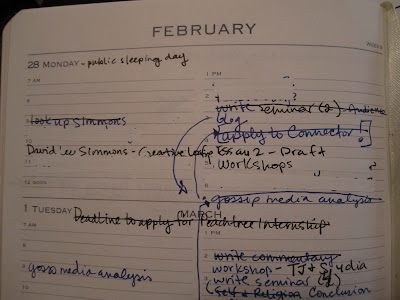 FEBRUARY
WEEK 9
28 MONDAY - public sleeping day
7 AM
1 PM
8
write seminar (2) - Audience
blog
9
look up Simmons
apply to Connector!
David Lee Simmons - Creative Loafing
Essay 2 - Draft
Workshops
11
12 NOON
6
gossip media analysis
1 TUESDAY
MARCH
Deadline to apply for Peachtree Internship
7 AM
1 PM
8
write commentary
workshop - TJ & Sydia
9
gossip media analysis
write seminar (4)
(Self & Religion Conclusion